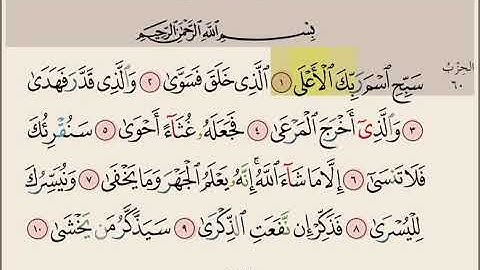 بِسْمِ ٱللَّهِ ٱلرَّحْمَٰنِ ٱلرَّحِيمِ
سَبِّحِ ٱسْمَ رَبِّكَ ٱلْأَعْلَى ١ ٱلَّذِى خَلَقَ فَسَوَّىٰ ٢ وَٱلَّذِى قَدَّرَ فَهَدَىٰ
٣ وَٱلَّذِىٓ أَخْرَجَ ٱلْمَرْعَىٰ ٤ فَجَعَلَهُۥ غُثَآءً أَحْوَىٰ ٥ سَنُقْرِئُكَ
فَلَا تَنسَىٰٓ ٦ إِلَّا مَا شَآءَ ٱللَّهُ ۚ إِنَّهُۥ يَعْلَمُ ٱلْجَهْرَ وَمَا يَخْفَىٰ ٧ وَنُيَسِّرُكَ
لِلْيُسْرَىٰ ٨ فَذَكِّرْ إِن نَّفَعَتِ ٱلذِّكْرَىٰ ٩ سَيَذَّكَّرُ مَن يَخْشَىٰ ١٠
الحِزْبُ
٦٠